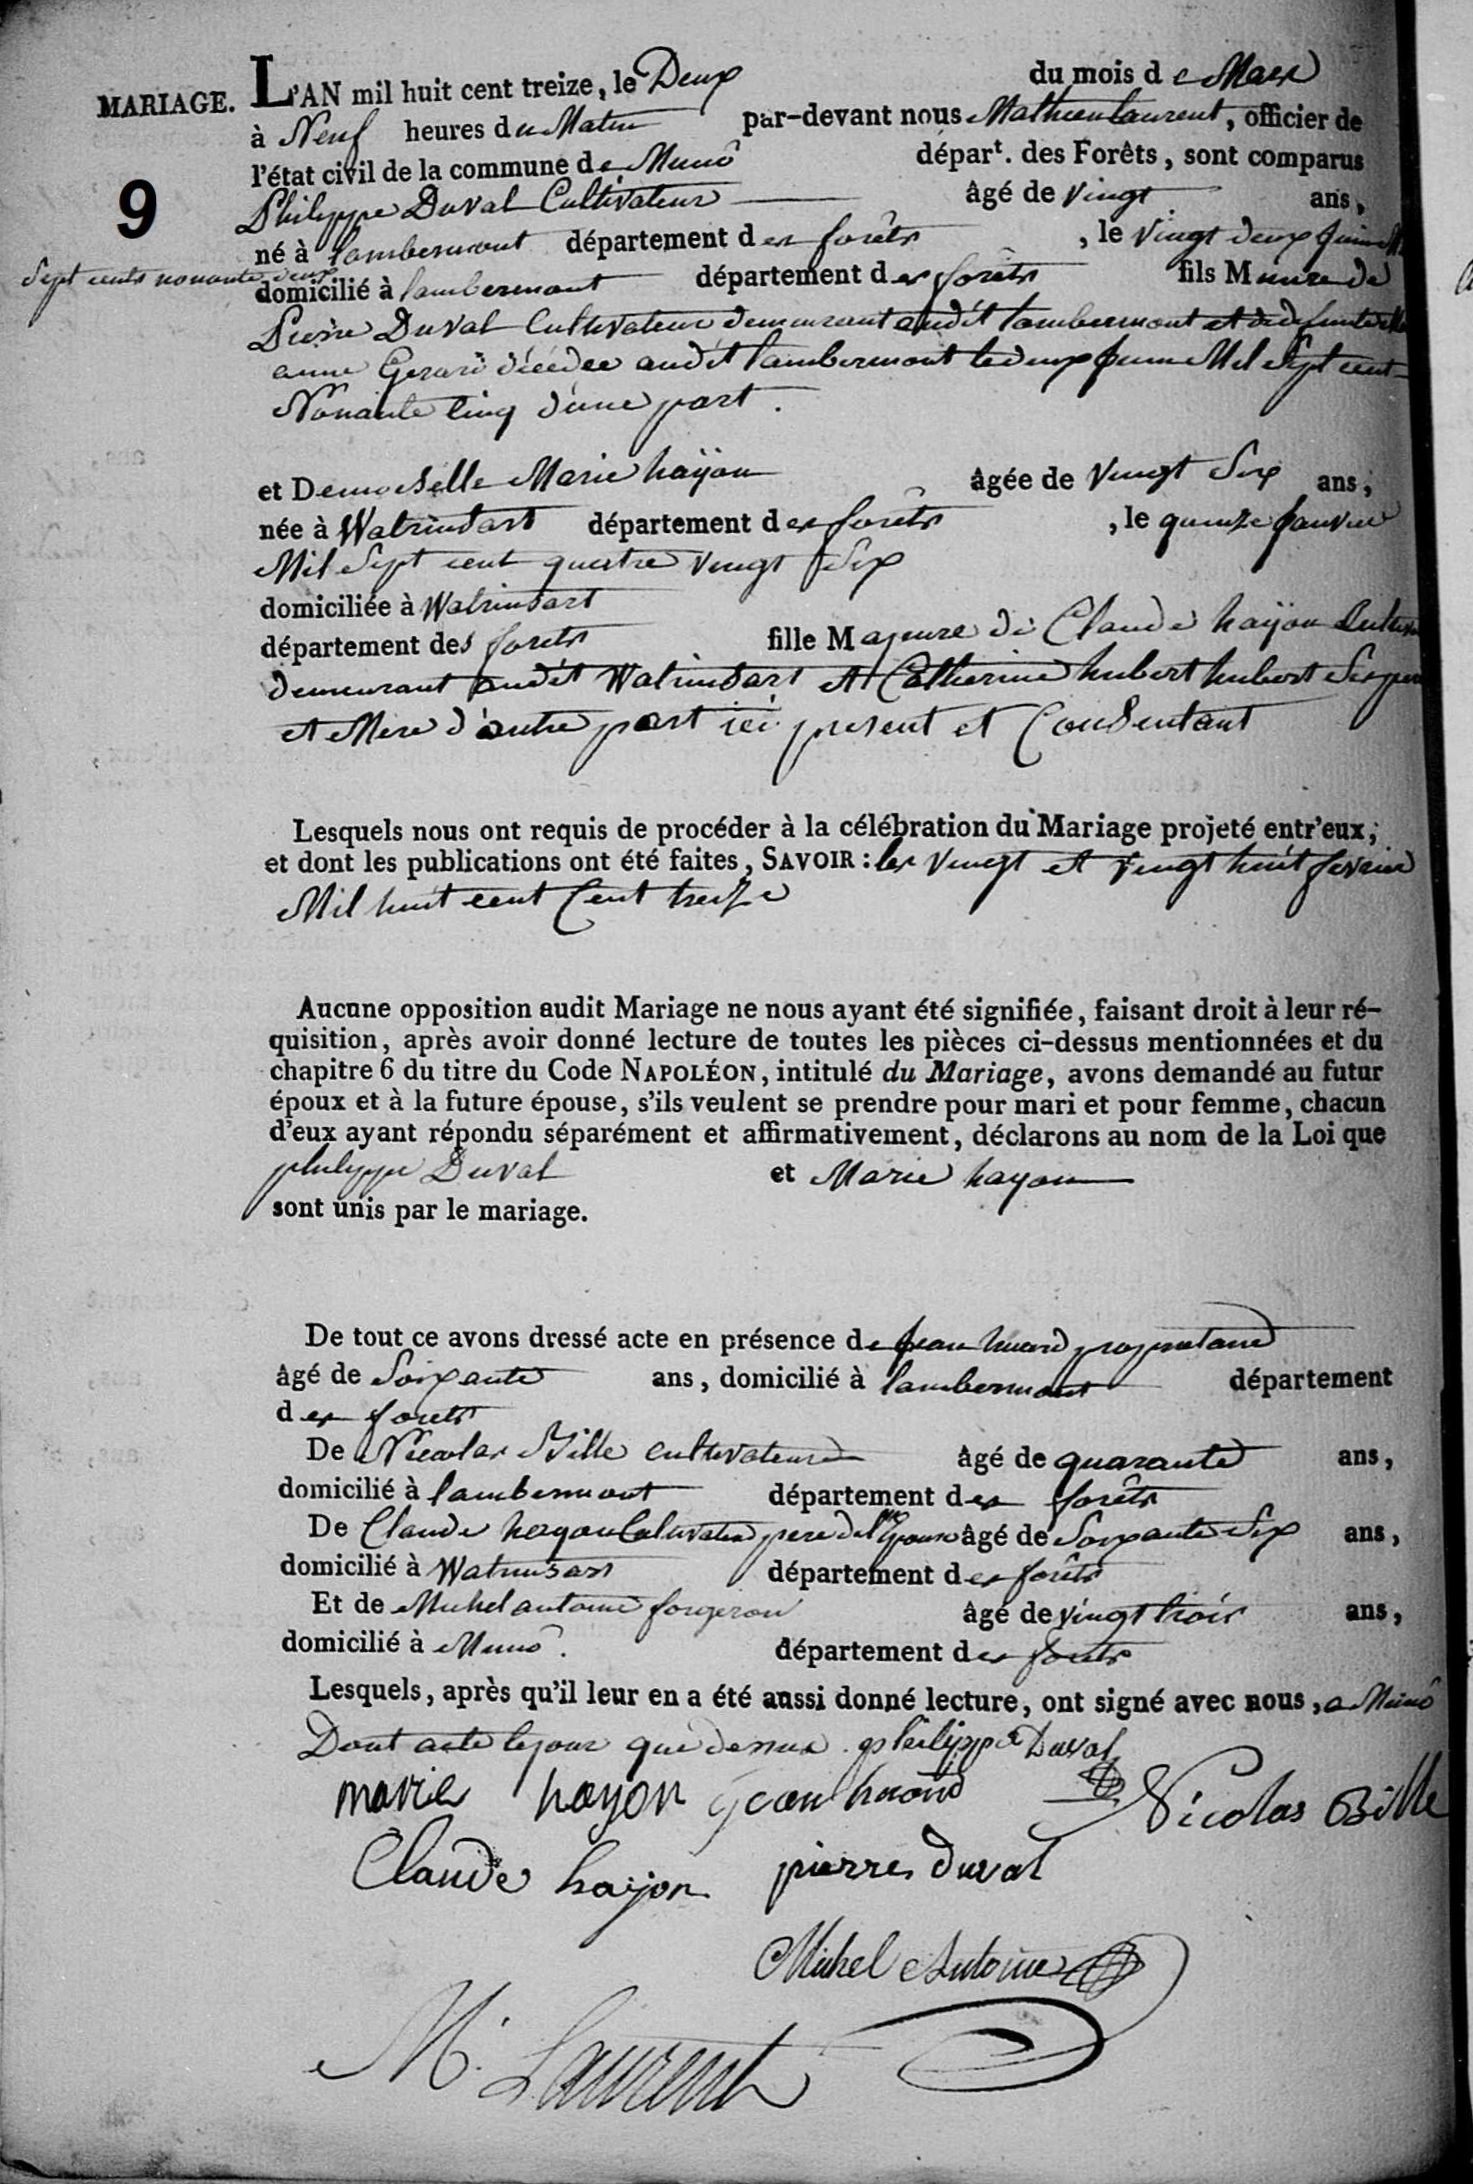 MARIAGE. L'AN mil huit cent treize, le Deux du mois de Mars
à Neuf heures du Matin par-devant nous Mathieu Laurent, officier de
l'état civil de la commune de Munô départ. des Forêts, sont comparus
9
Philippe Duval Cultivateur âgé de vingt ans,
né à Lambermont département des forêts, le vingt deux Juin
Sept cents nonante deux
domicilié à Lambermont département des forêts fils Mineure de
Pierre Duval Cultivateur demeurant audit Lambermont et de defunte
anne Gerard décédée audit Lambermont le deux Juin Mil Sept cent
Nonante Cinq d'une part.
et Demoiselle Marie haÿon âgée de Vingt Six ans,
née à Watrinsart département des forêts, le quinze Janvier
Mil Sept cent quatre vingt Six
domiciliée à Watrinsart
département des forets fille Majeure de Claude haÿon
demeurant audit Watrinsart et Catherine hubert hubert Ses pere
et Mere d'autre part ici present et Consentant
Lesquels nous ont requis de procéder à la célébration du Mariage projeté entr'eux,
et dont les publications ont été faites, SAVOIR : les vingt et vingt huit fevrier
Mil huit cent Cent treize
Aucune opposition audit Mariage ne nous ayant été signifiée, faisant droit à leur ré-
quisition, après avoir donné lecture de toutes les pièces ci-dessus mentionnées et du
chapitre 6 du titre du Code NAPOLÉON, intitulé du Mariage, avons demandé au futur
époux et à la future épouse, s'ils veulent se prendre pour mari et pour femme, chacun
d'eux ayant répondu séparément et affirmativement, déclarons au nom de la Loi que
philippe Duval et Marie hayon
sont unis par le mariage.
De tout ce avons dressé acte en présence de Jean huard proprietaire
âgé de Soixante ans, domicilié à Lambermont département
des forets
De Nicolas Bille cultivateur âgé de quarante ans,
domicilié à Lambermont département des forêts
De Claude hayon Cultivateur pere de l'Epouse âgé de Soixante Six ans,
domicilié à Watrinsart département des forêts
Et de Michel antoine forgeron âgé de vingt trois ans,
domicilié à Munô. département des forets
Lesquels, après qu'il leur en a été aussi donné lecture, ont signé avec nous, a Munô
Dont acte le jour que dessus. philippe Duval
marie hayon jean huard Nicolas Bille
Claude haijon pierre duval
Michel Antoine
M. Laurent